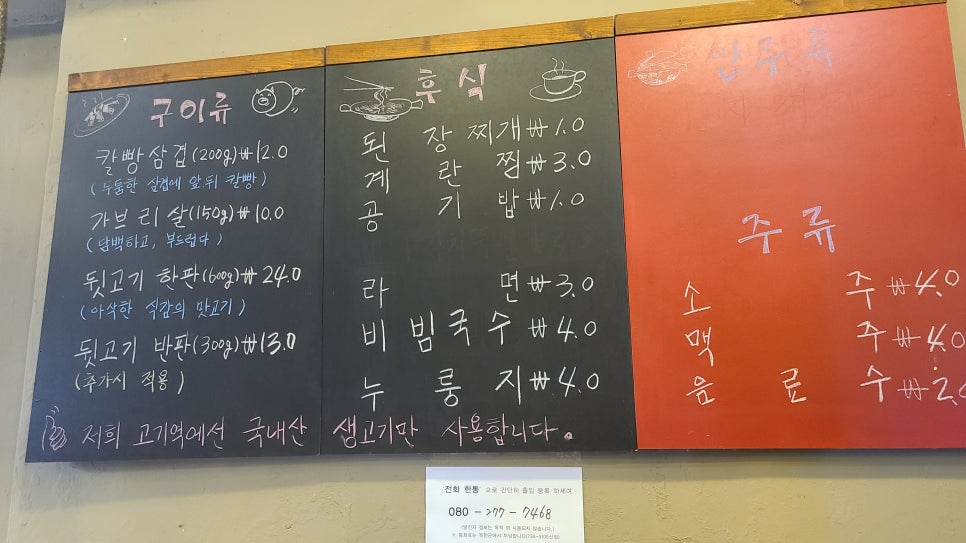 구이류
칼빵삼겹(200g)₩12.0
(두툼한 삼겹에 앞뒤 칼빵)
가브리살(150g)₩10.0
(담백하고, 부드럽다)
뒷고기 한판(600g)₩24.0
(아삭한 식감의 맛고기)
뒷고기 반판(300g)₩13.0
(추가시 적용)
후식
된장찌개₩1.0
계란찜₩3.0
공기밥₩1.0
라면₩3.0
비빔국수₩4.0
누룽지₩4.0
주류
소주₩4.0
맥주₩4.0
음료수₩2.0
저희 고기역에선 국내산 생고기만 사용합니다.
전화 한통 으로 간단히 출입 등록 하세여
080-277-7468
(발신자 정보는 목적 외 사용되지 않습니다.)